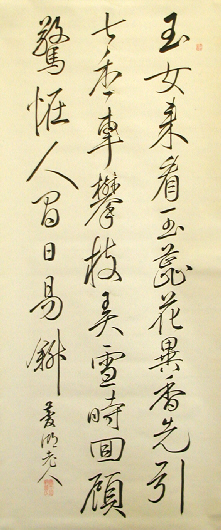 玉女来看玉蕋花異香先引
七香車攀枝弄雪時回顧
驚恠人間日易斜
菱湖老人